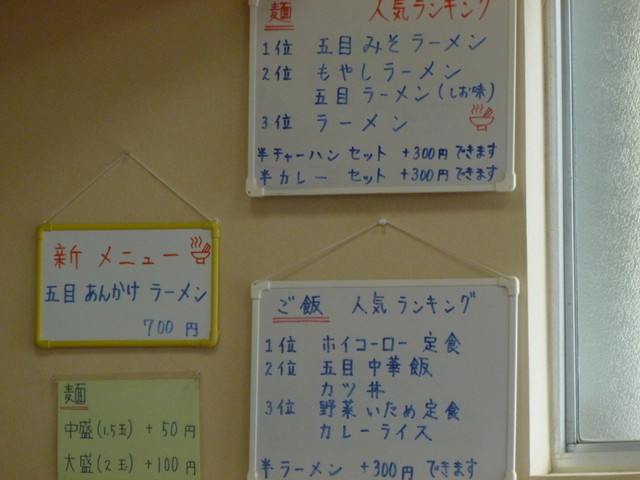 麺 人気ランキング
1位 五目みそラーメン
2位 もやしラーメン
五目ラーメン(しお味)
3位 ラーメン
半チャーハン セット +300円できます
半カレー セット +300円できます
新メニュー
五目あんかけラーメン
700円
麺
中盛(1.5玉) +50円
大盛(2玉) +100円
ご飯 人気ランキング
1位 ホイコーロー定食
2位 五目中華飯
カツ丼
3位 野菜いため定食
カレーライス
半ラーメン +300円できます